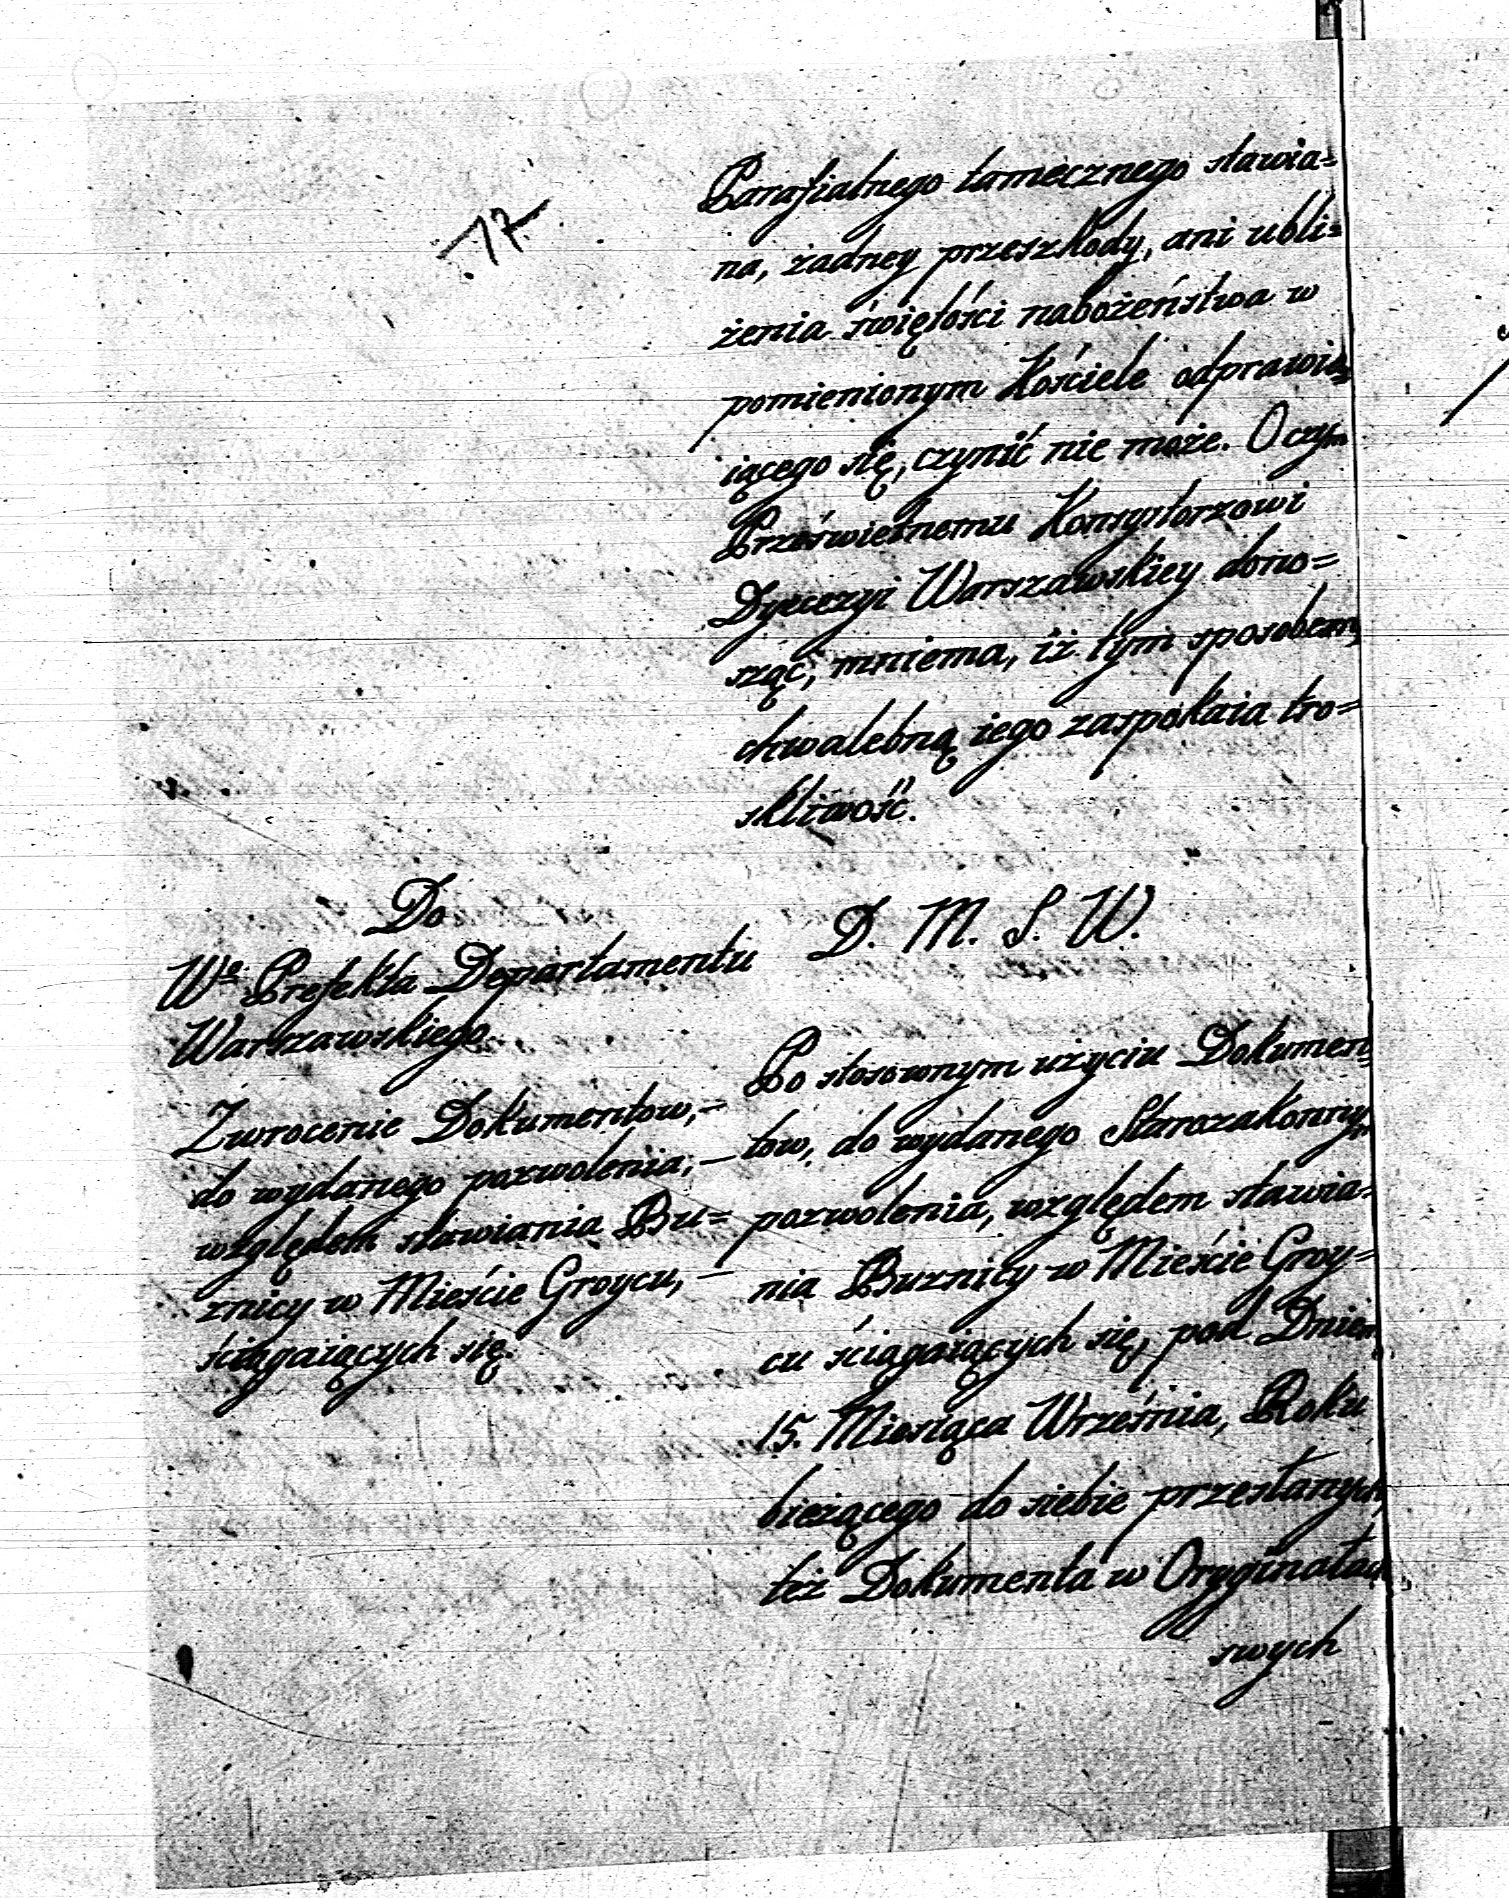 17
Parafialnego tamecznego stawia=
na, żadney przeszkody, ani ubli=
żenia świętości nabożeństwa w
pomienionym Kościele odprawu=
iącego się, czynić nie może. O czym
Prześwietnemu Konsystorzowi
Dyecezyi Warszawskiey dono=
sząc, mniema, iż tym sposobem
chwalebną iego zaspokaia tro=
skliwość.
Do
We Prefekta Departamentu
Warszawskiego
Zwrocenie Dokumentow, –
do wydanego pozwolenia, –
względem stawiania Bu=
znicy w Mieście Groycu, –
ściągaiących się.
D. M. S. W.
Po stosownym użyciu Dokumen=
tow, do wydanego Starozakonnym
pozwolenia, względem stawia=
nia Buznicy w Mieście Groy=
cu ściągaiących się, pod Dniem
15. Miesiąca Września, Roku
bieżącego do siebie przesłanych
też Dokumenta w Oryginałach
swych